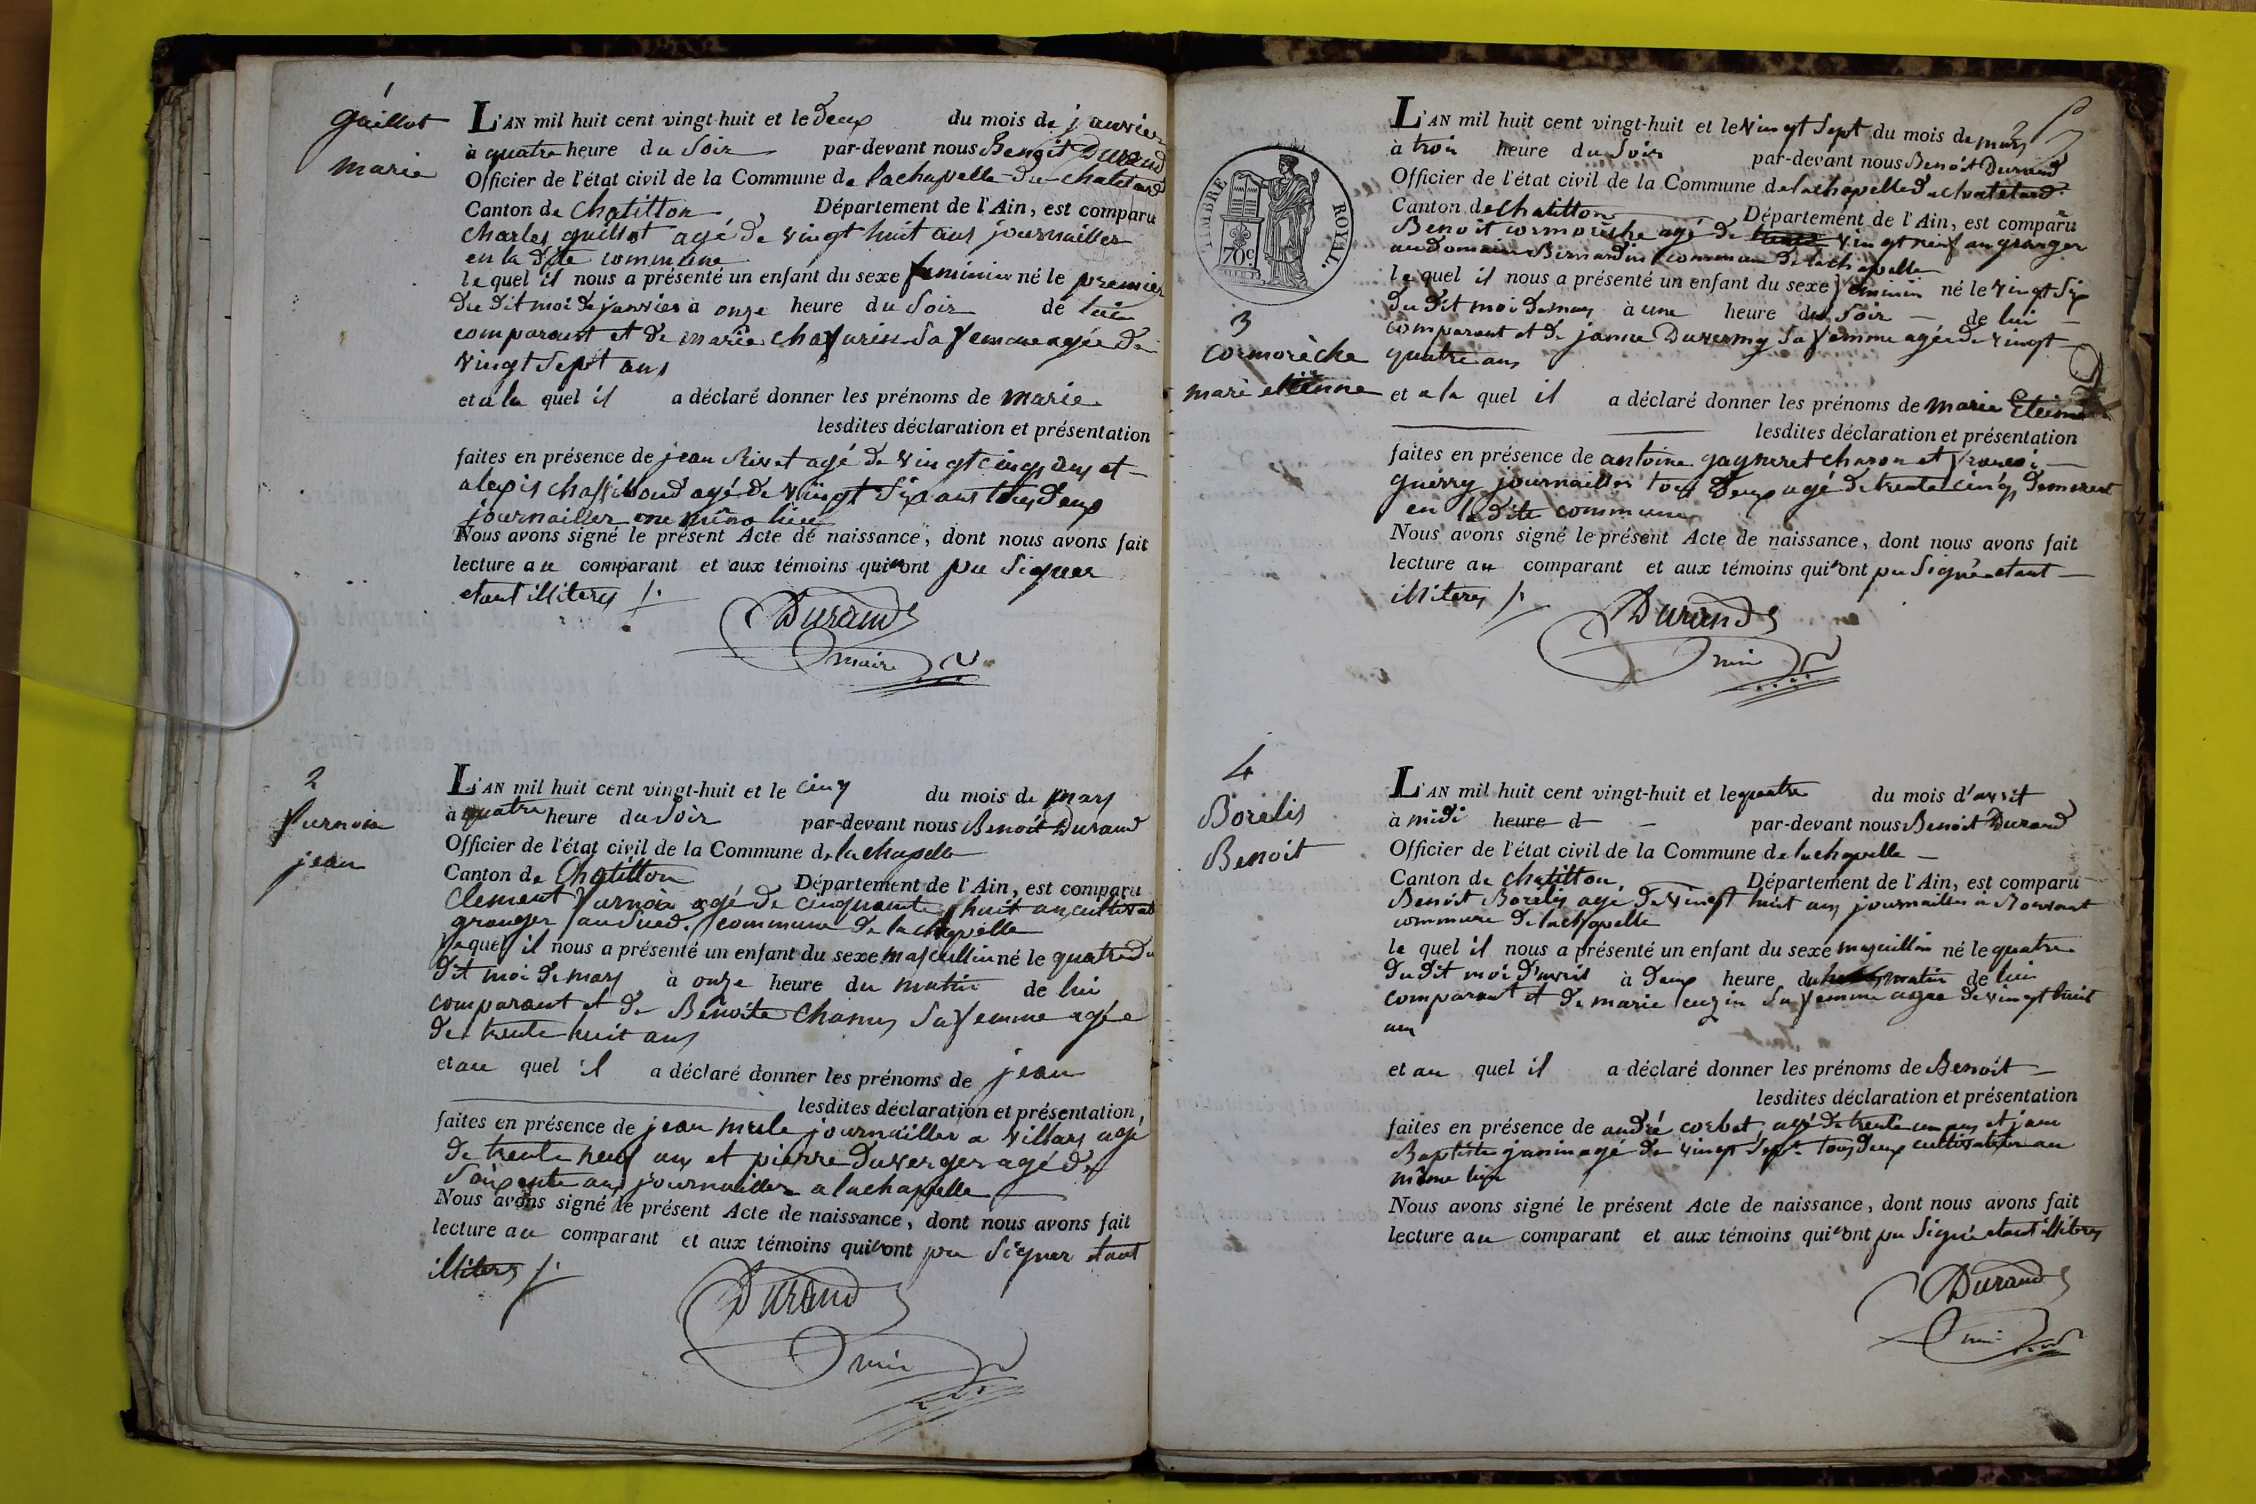 guillot
marie
L'AN mil huit cent vingt-huit et le deux du mois de janvier
à quatre heure du Soir par-devant nous Benoit Durand
Officier de l'état civil de la Commune de lachapelle du chatelard
Canton de chatillon, Département de l'Ain, est comparu
charles guillot agé de vingt huit ans journaillier
en la dite commune
le quel il nous a présenté un enfant du sexe feminin né le premier
du dit moi de janvier à onze heure du Soir de lui
comparant et de marie chafurin Sa femme agée de
vingt Sept ans
et a la quel il a déclaré donner les prénoms de marie
lesdites déclaration et présentation
faites en présence de jean Rivet agé de vingt cinq ans et
alexis chassiboud agé de vingt Six ans tous deux
journailler au même lieu
Nous avons signé le présent Acte de naissance, dont nous avons fait
lecture au comparant et aux témoins qui n'ont pu Signer
etant illiterés
Durand
maire
2
Purnoix
jean
L'AN mil huit cent vingt-huit et le cinq du mois de mars
à quatre heure du Soir par-devant nous Benoit Durand
Officier de l'état civil de la Commune de lachapelle
Canton de Chatillon Département de l'Ain, est comparu
Clement Purnoix agé de cinquante huit an cultivat
granger commune de la chapelle
le quel il nous a présenté un enfant du sexe mascullin né le quatre du
dit moi de mars à onze heure du matin de lui
comparant et de Benoite Chanus Sa femme agée
de trente huit ans
et au quel il a déclaré donner les prénoms de jean
lesdites déclaration et présentation,
faites en présence de jean merle journailler a villars agé
de trente neuf ans et pierre Duverger agé de
Soixente ans journailler a lachapelle
Nous avons signé le présent Acte de naissance, dont nous avons fait
lecture au comparant et aux témoins qui n'ont pu Signer etant
illiterés
Durand
maire
TIMBRE ROYAL.
70c.
3
cormorèche
marie etiënne
L'AN mil huit cent vingt-huit et le vingt Sept du mois de mars
à troi heure du Soir par-devant nous Benoit Durand
Officier de l'état civil de la Commune de lachapelle du chatelard
Canton de chatillon Département de l'Ain, est comparu
Benoit cormoreche agé de vingt neuf an granger
au domaine Bernardin commune de lachapelle
le quel il nous a présenté un enfant du sexe feminin né le vingt Six
du dit moi de mars à une heure du Soir de lui
comparant et de janne Duverny Sa femme agée de vingt
quatre ans
et a la quel il a déclaré donner les prénoms de marie Etienne
lesdites déclaration et présentation
faites en présence de antoine gagneret charon et françoi
guerry journaillier tous deux agé de trente cinq demerent
en ladite commune
Nous avons signé le présent Acte de naissance, dont nous avons fait
lecture au comparant et aux témoins qui n'ont pu Signé etant
illiterés
Durand
maire
4
Borélis
Benoit
L'AN mil huit cent vingt-huit et le quatre du mois d'avril
à midi heure d par-devant nous Benoit Durand
Officier de l'état civil de la Commune de lachapelle
Canton de chatillon, Département de l'Ain, est comparu
Benoit Borélis agé de vingt huit ans journaillier a
commune de lachapelle
le quel il nous a présenté un enfant du sexe mascullin né le quatre
du dit moi d'avril à deux heure du matin de lui
comparant et de marie cuzin Sa femme agee de vingt huit
ans
et au quel il a déclaré donner les prénoms de Benoit
lesdites déclaration et présentation
faites en présence de andré corbet agé de trente un ans et jean
Baptiste janin agé de vingt Sept tous deux cultivateur au
même lieu
Nous avons signé le présent Acte de naissance, dont nous avons fait
lecture au comparant et aux témoins qui n'ont pu Signé etant illiterés
Durand
maire